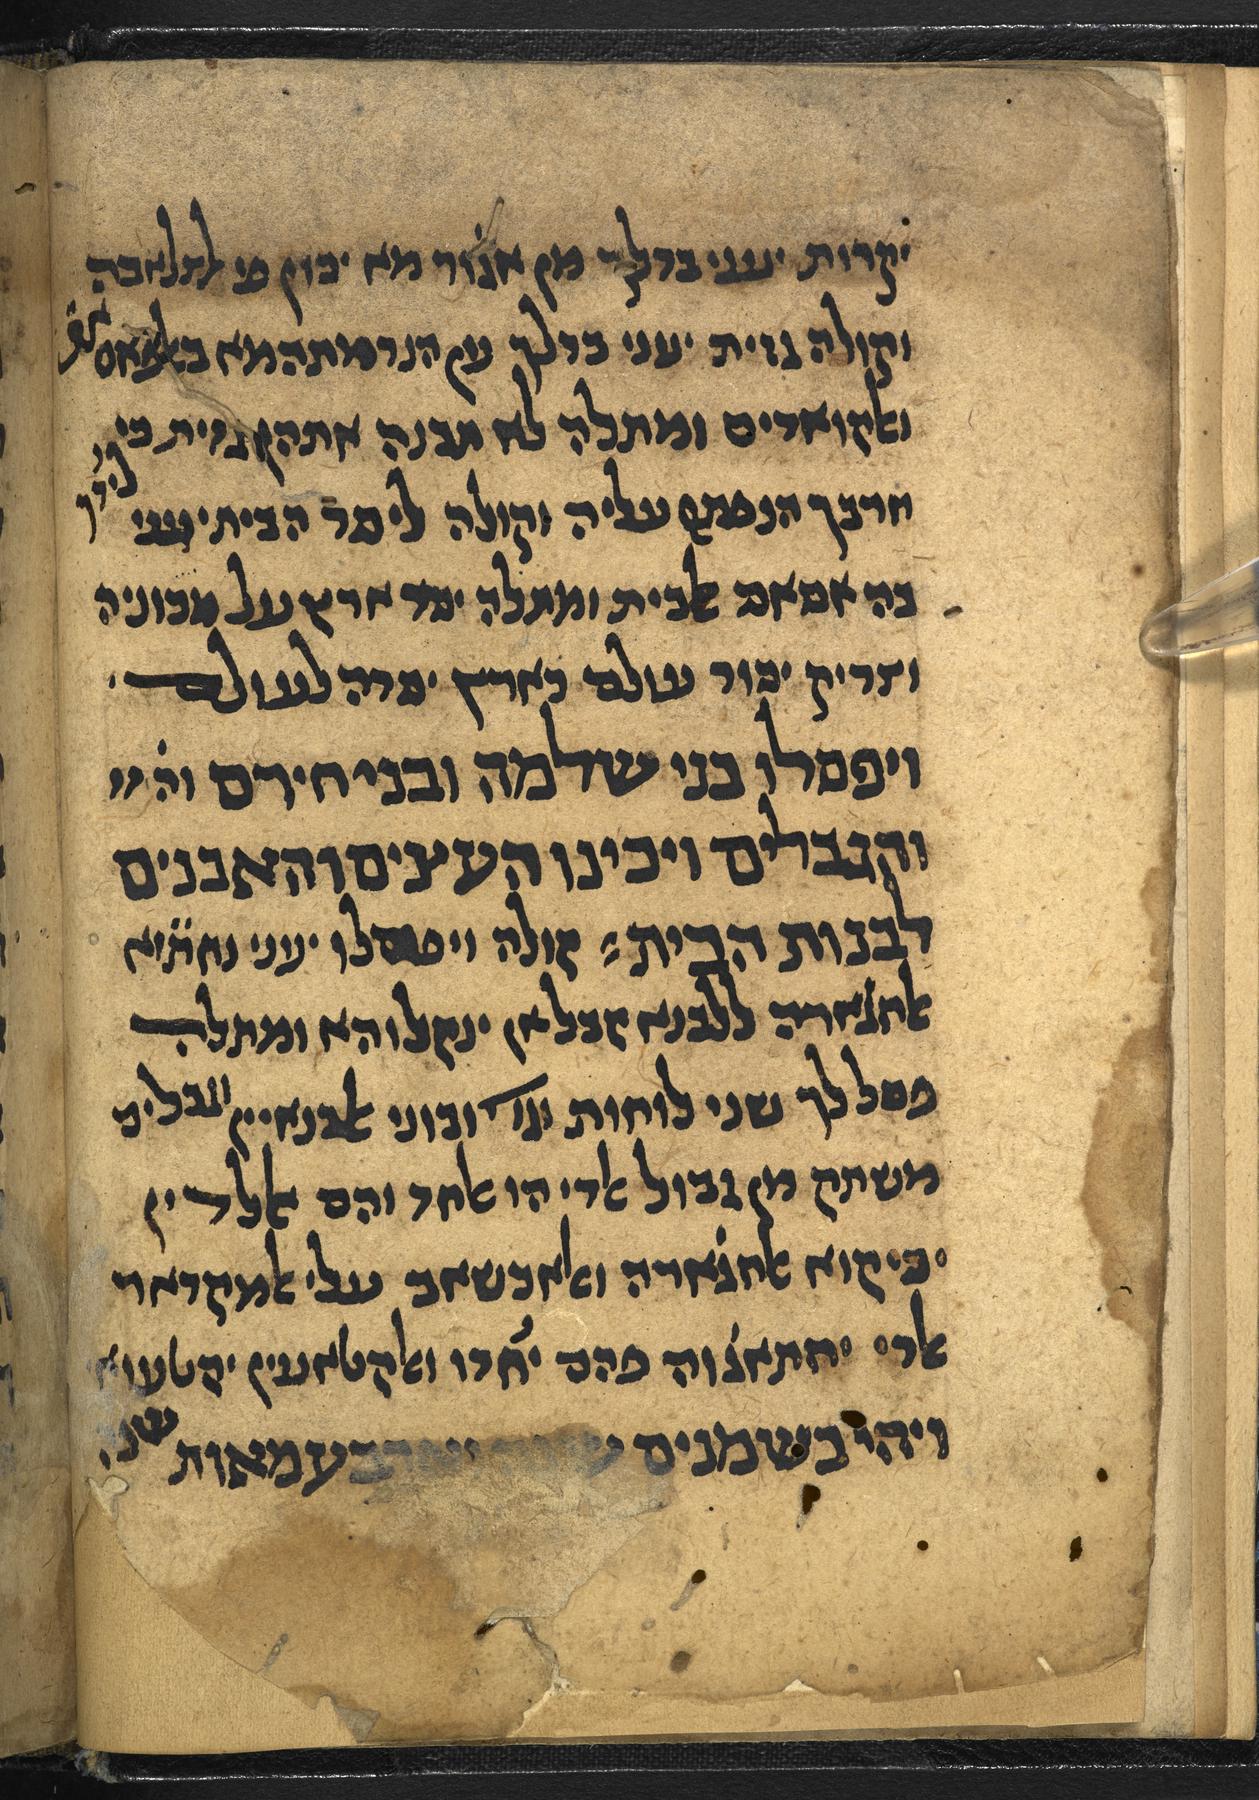 יקרות יעני בדלך מן אגׄור מא יכון פי לתלאבה
וקולה גזית יעני בדלך ען הנדסתהמא באלפאס
ואלקואדים ומתלה לא תבנה אתהן גזית כי
חרבך הנפת עליה וקולה ליסד הבית יעני
בה אסאס אלבית ומתלה יסד ארץ על מכוניה
וצדיק יסוד עולם כארץ יסדה לעולם
ויפסלו בני שלמה ובני חירם וה
והגבלים ויכינו העצים והאבנים
לבנות הבית׃ קולה ויפסלו יעני נחתׄוא
אלחגׄארה ללבנא קבל אן ינקלוהא ומתלה
פסל לך שני לוחות ובוני אלבנאיין וגבלים
משתק מן גבול אלדי הו אלחד והם אלדין
יסיקוא אלחגׄארה ואלאכשאב עלי אלמקדאר
אלדי יחתאגׄוה פהם יחׄדו ואלקטאעין יקטעוא
ויהי בשמנים שנה וארבע מאות שנה